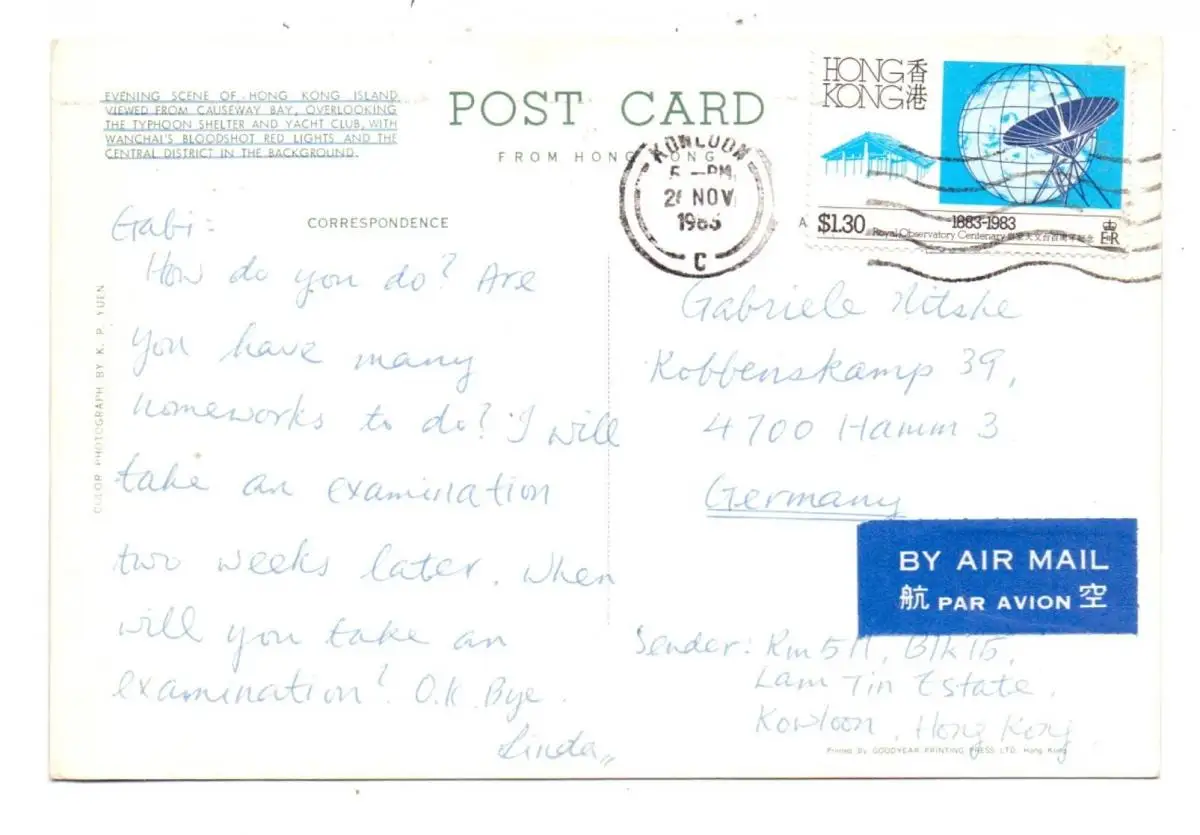 EVENING SCENE OF HONG KONG ISLAND
VIEWED FROM CAUSEWAY BAY, OVERLOOKING
THE TYPHOON SHELTER AND YACHT CLUB, WITH
WANCHAI'S BLOODSHOT RED LIGHTS AND THE
CENTRAL DISTRICT IN THE BACKGROUND.
POST CARD
FROM HONG KONG
CORRESPONDENCE
COLOR PHOTOGRAPH BY K. P. YUEN
Gabi:
How do you do? Are
you have many
homeworks to do? I will
take an examination
two weeks later. When
will you take an
examination? O.K. Bye.
Linda
KOWLOON
5 -PM
NOV
1983
C
A
HONG 香
KONG 港
$1.30
1883-1983
Royal Observatory Centenary
E II R
Gabriele Nitshe
Kobbenskamp 39,
4700 Hamm 3
Germany
BY AIR MAIL
航 PAR AVION 空
Sender: Rm 511, Blk 15,
Lam Tin Estate,
Kowloon, Hong Kong.
Printed by GOODYEAR PRINTING PRESS LTD. Hong Kong